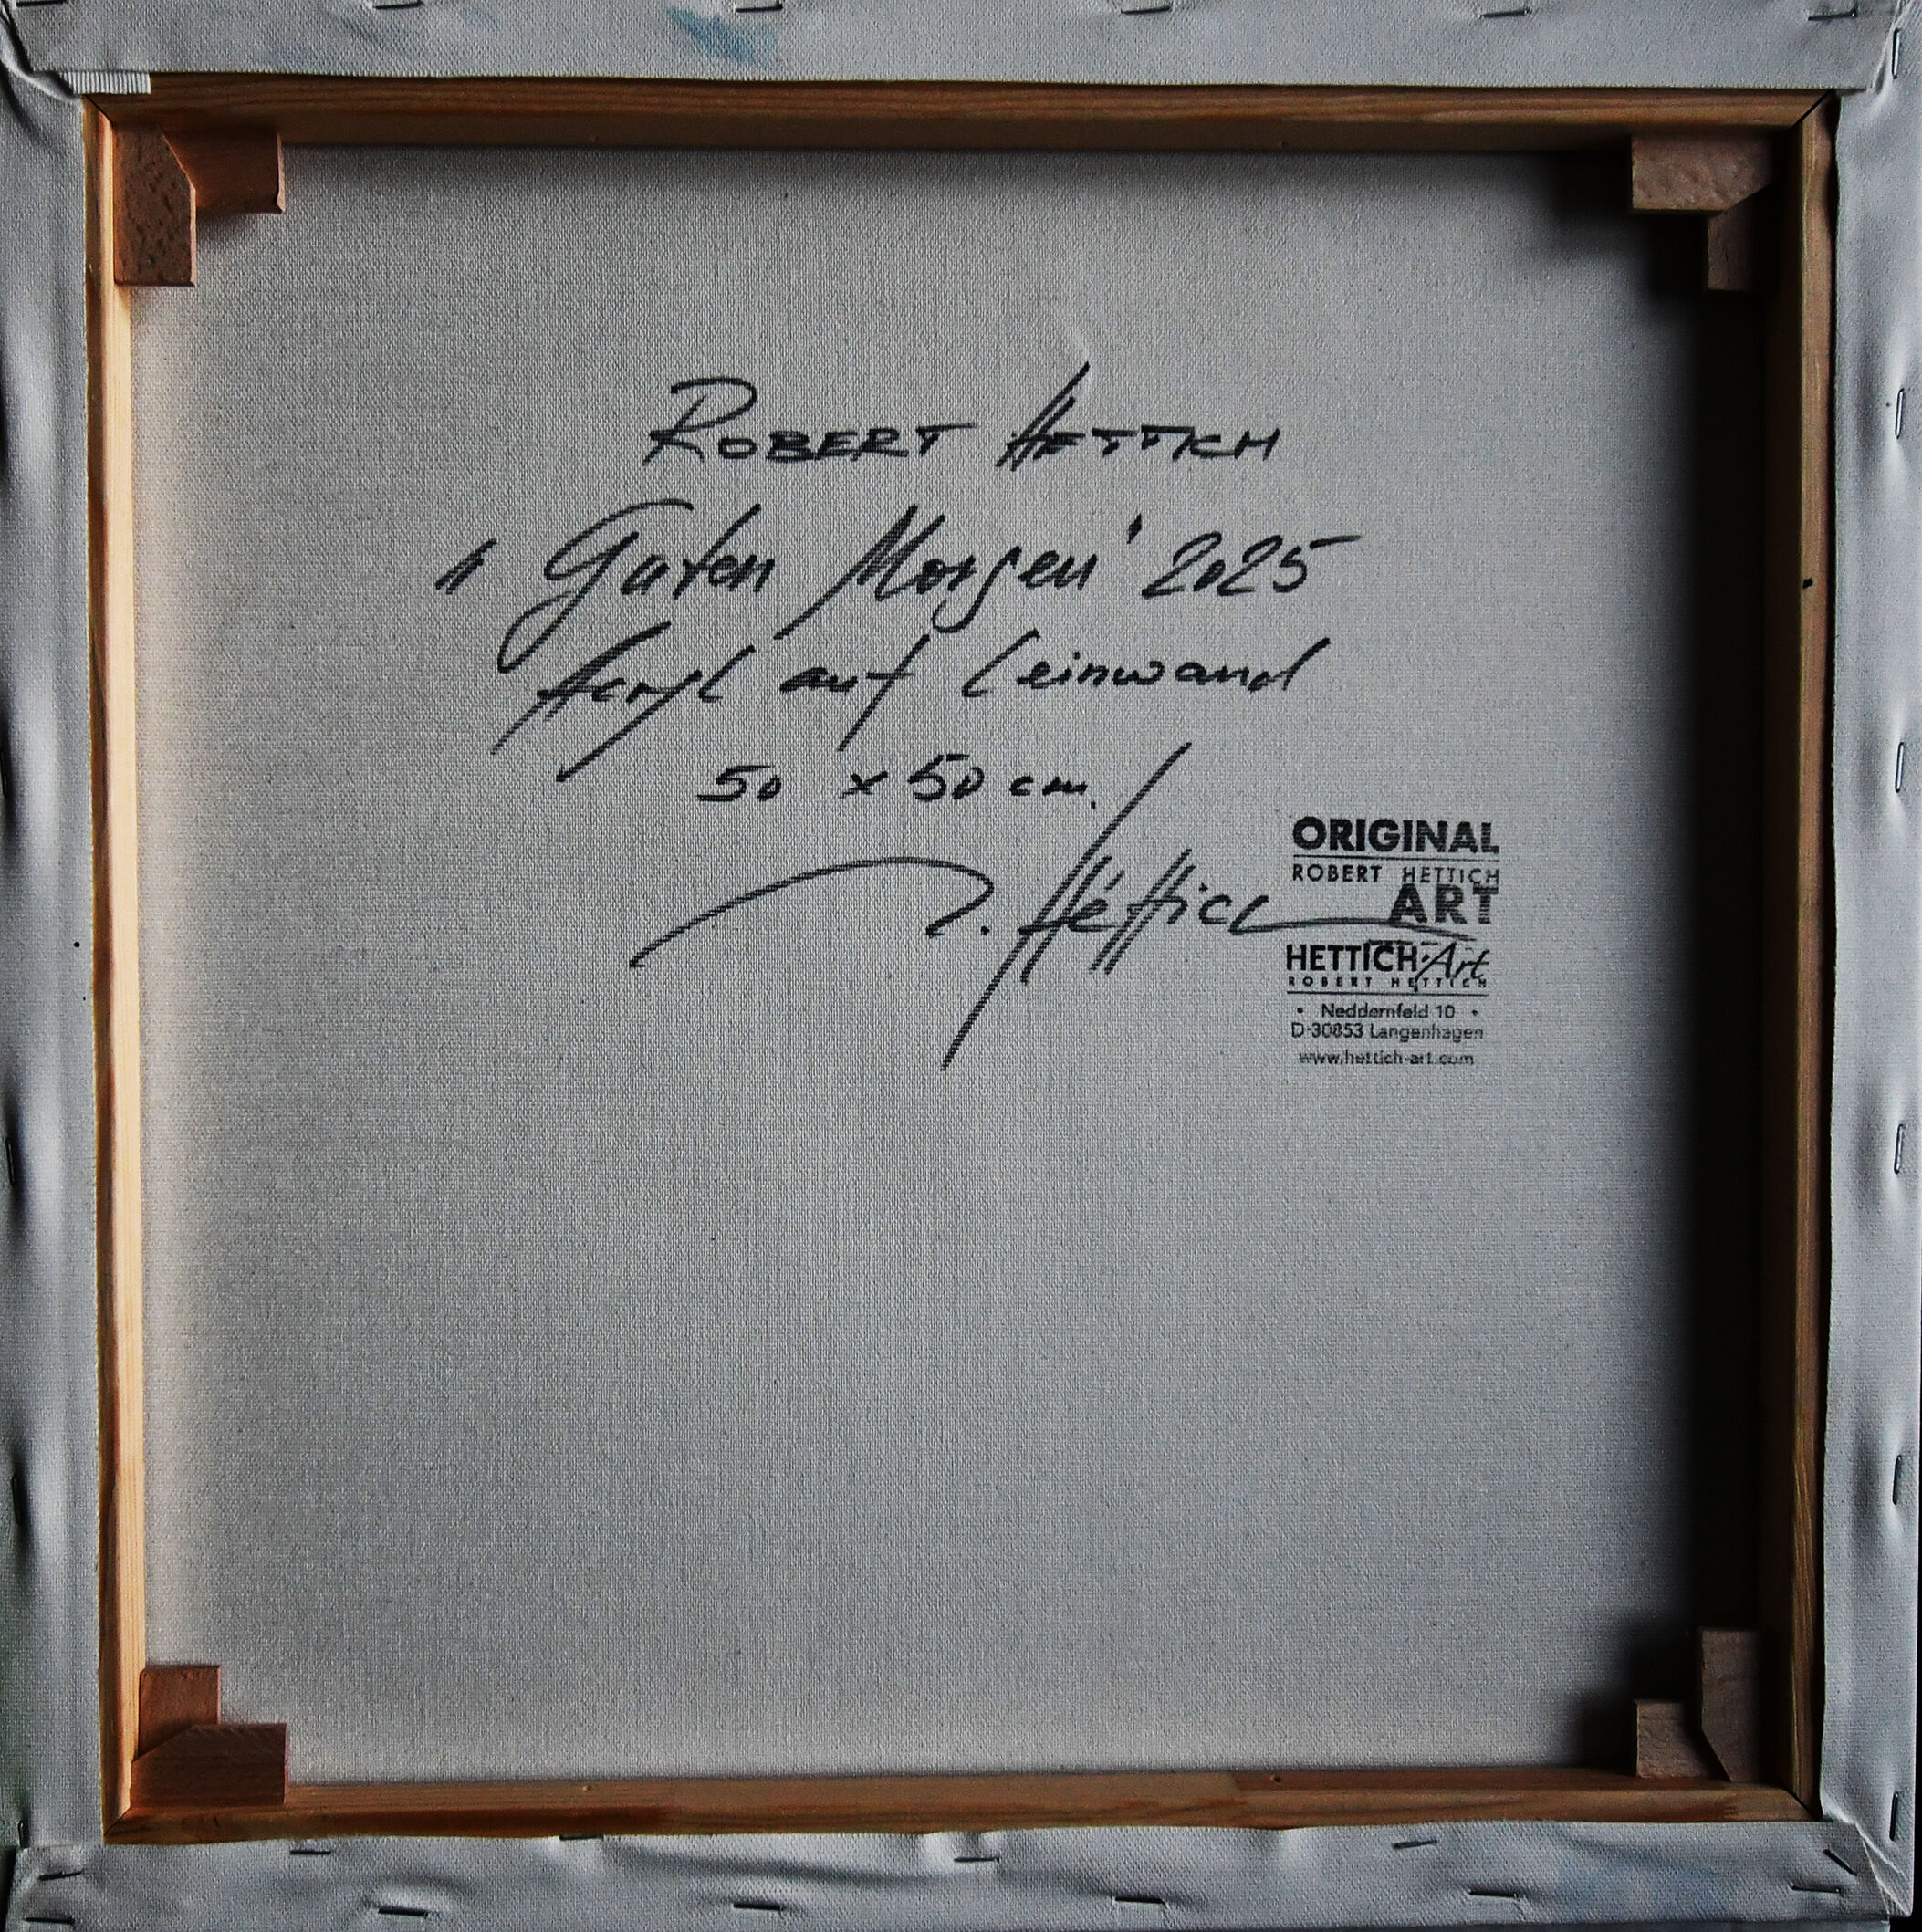 ROBERT HETTICH
" Guten Morgen' 2025
Acryl auf Leinwand
50 x 50 cm.
R. Hettich
ORIGINAL
ROBERT HETTICH
ART
HETTICH-Art
ROBERT HETTICH
• Neddernfeld 10 •
D-30853 Langenhagen
www.hettich-art.com